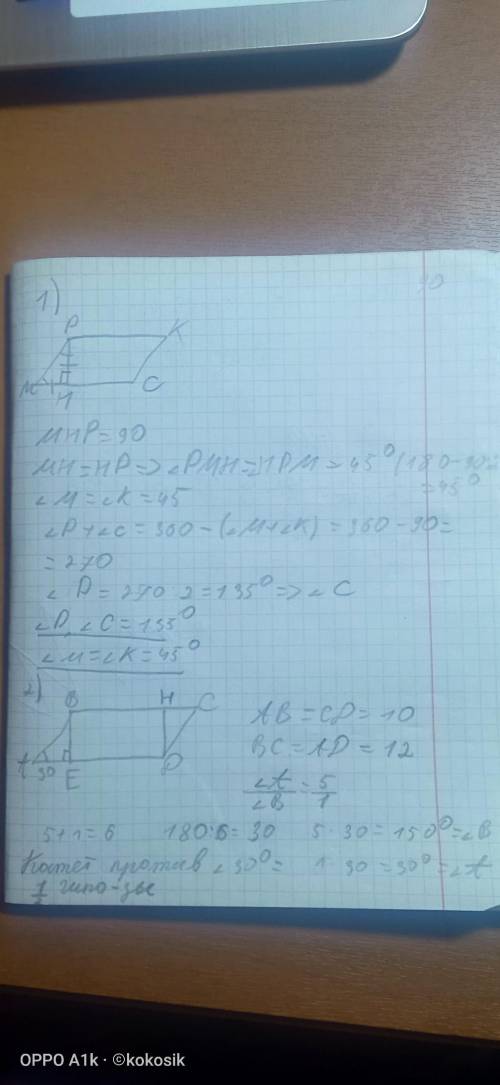 1)
P
K
M
H
C
MHP=90
MH=HP=>∠PMH=HPM=45° (180-90=
=45°
∠M=∠K=45
∠P+∠C=360-(∠M+∠K)=360-90=
=270
∠P=270:2=135°=>∠C
∠P,∠C=135°
∠M=∠K=45°
2)
B H C
A 30 E D
AB=CD=10
BC=AD=12
∠A/∠B=5/1
5+1=6 180:6=30 5·30=150°=∠B
Катет против ∠30°= 1·30=30°=∠A
1/2 гипо-зы
OPPO A1k · ©kokosik